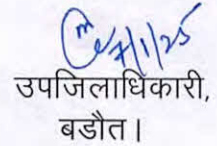 7/1/25
उपजिलाधिकारी,
बडौत।